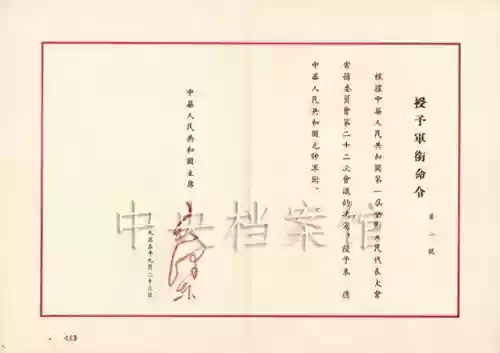 授予軍銜命令
第一號
根據中華人民共和國第一屆全國人民代表大會
常務委員會第二十二次會議的決定，授予朱德
中華人民共和國元帥軍銜。
中華人民共和國主席
毛澤東
一九五五年九月二十三日
中央档案馆